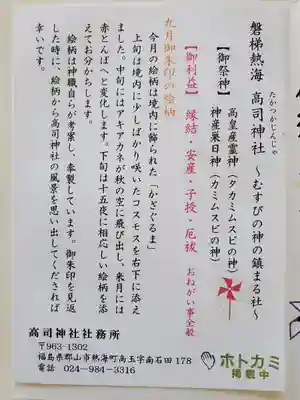 磐梯熱海 高司神社 ～むすびの神の鎮まる社～
たかつかじんじゃ
【御祭神】 高皇産霊神（タカミムスビの神）
神産巣日神（カミムスビの神）
【御利益】 縁結・安産・子授・厄祓 おねがい事全般
九月御朱印の絵柄
今月の絵柄は境内に飾られた「かざぐるま」
上旬は境内に少しばかり咲いたコスモスを右下に添え
ました。中旬にはアキアカネが秋の空に飛び出し、来月には
赤とんぼへと変化します。下旬は十五夜に相応しい絵柄を添
えてお分かちします。
絵柄は神職自らが考案し、奉製しています。御朱印を見返
した時に、絵柄から高司神社の風景を思い出してくだされば
幸いです。
高司神社社務所
〒963-1302
福島県郡山市熱海町高玉字南石田 178
電話 024-984-3316
ホトカミ
掲載中